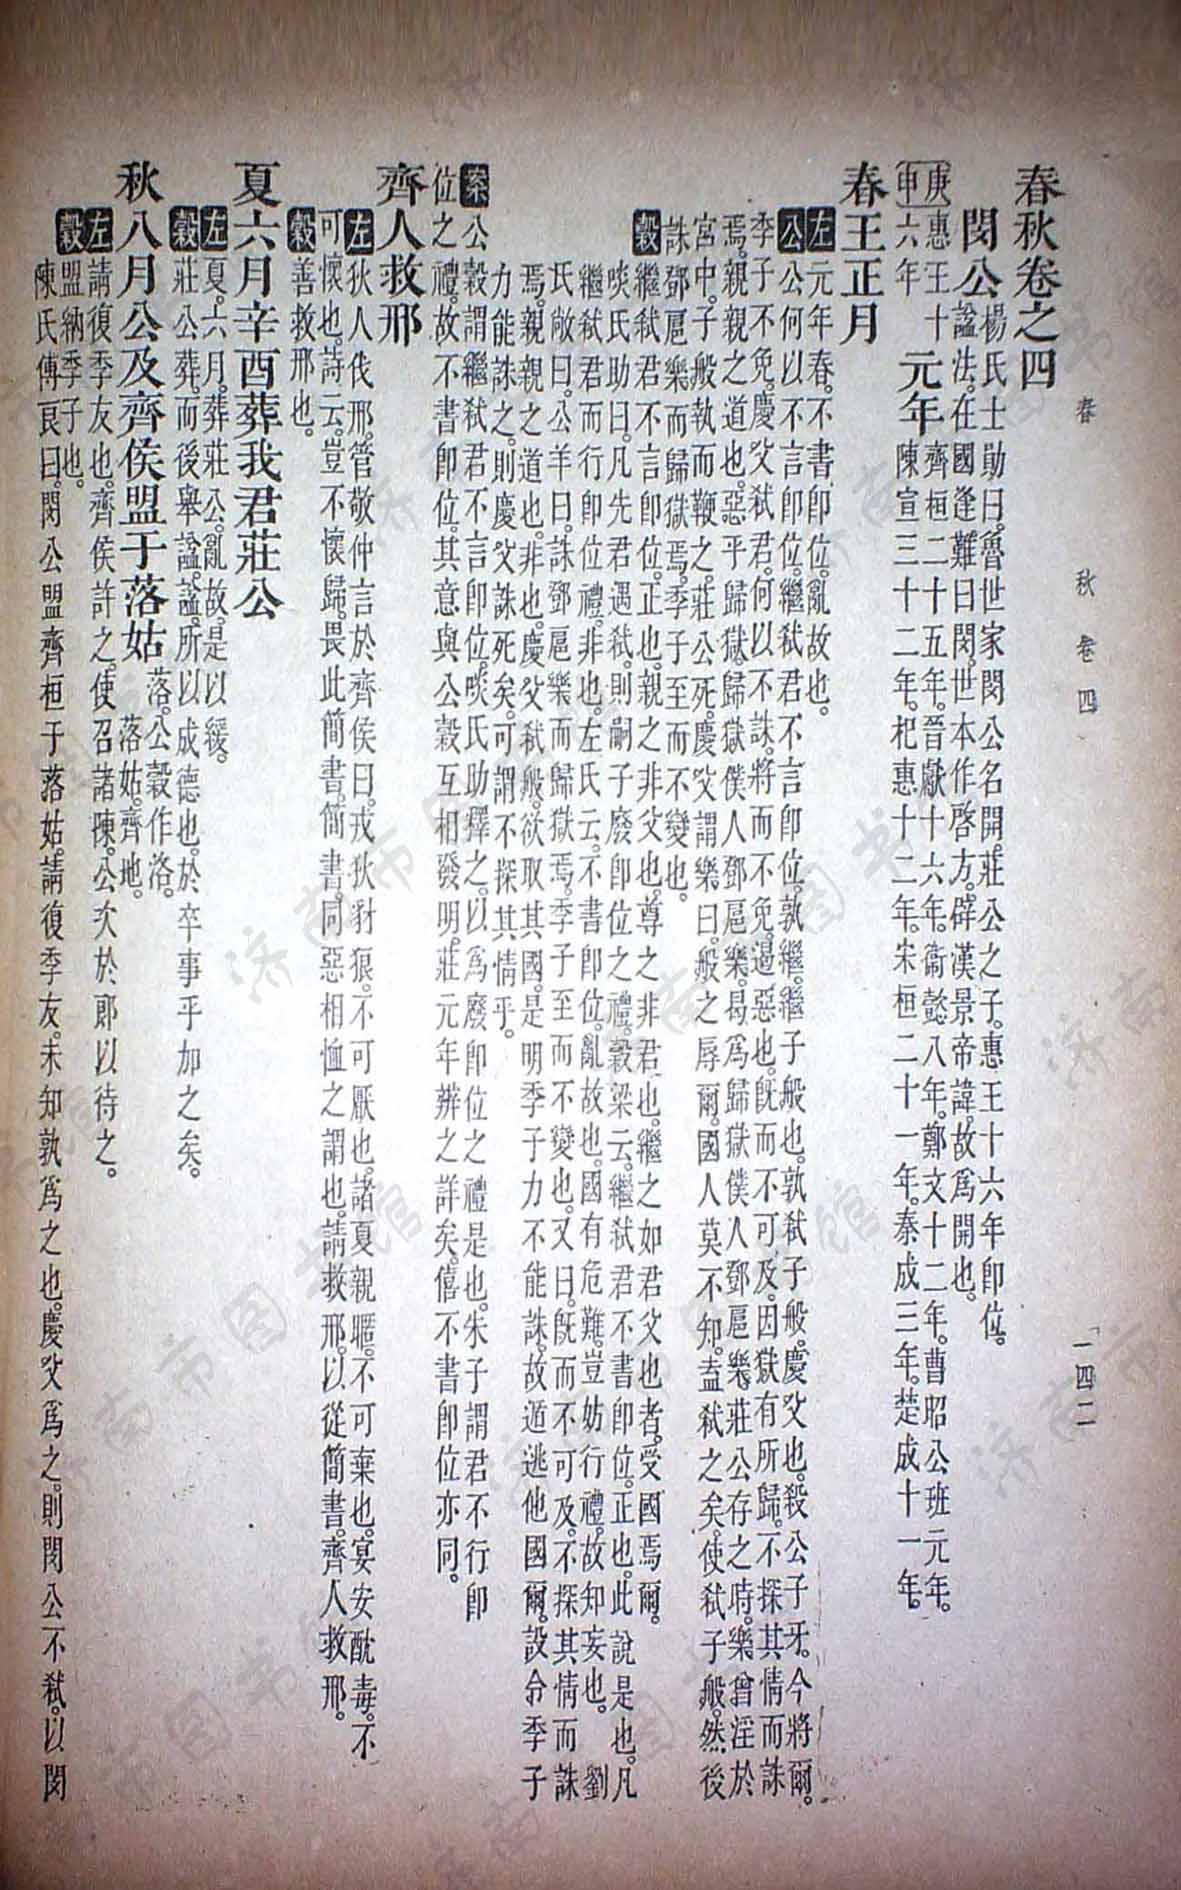 春　秋　卷四　一四二
春秋卷之四
閔公
楊氏士勛曰。魯世家閔公名開。莊公之子。惠王十六年卽位。
諡法。在國逢難曰閔。世本作啓方。辟漢景帝諱。故爲開也。
庚申
惠王十六年
元年
齊桓二十五年。晉獻十六年。衞懿八年。鄭文十二年。曹昭公班元年。
陳宣三十二年。杞惠十二年。宋桓二十一年。秦成三年。楚成十一年。
春王正月
左元年春。不書卽位。亂故也。
公公何以不言卽位。繼弒君不言卽位。孰繼。繼子般也。孰弒子般。慶父也。殺公子牙。今將爾。
季子不免。慶父弒君。何以不誅。將而不免。遏惡也。旣而不可及。因獄有所歸。不探其情而誅
焉。親親之道也。惡乎歸獄。歸獄僕人鄧扈樂。曷爲歸獄僕人鄧扈樂。莊公存之時。樂曾淫於
宮中。子般執而鞭之。莊公死。慶父謂樂曰。般之辱爾。國人莫不知。盍弒之矣。使弒子般。然後
誅鄧扈樂而歸獄焉。季子至而不變也。
穀繼弒君不言卽位。正也。親之非父也。尊之非君也。繼之如君父也者。受國焉爾。
啖氏助曰。凡先君遇弒。則嗣子廢卽位之禮。穀梁云。繼弒君不書卽位。正也。此說是也。凡
繼弒君而行卽位禮。非也。左氏云。不書卽位。亂故也。國有危難。豈妨行禮。故知妄也。　劉
氏敞曰。公羊曰。誅鄧扈樂而歸獄焉。季子至而不變也。又曰。旣而不可及。不探其情而誅
焉。親親之道也。非也。慶父弒般。欲取其國。是明季子力不能誅。故遁逃他國爾。設令季子
力能誅之。則慶父誅死矣。可謂不探其情乎。
案公穀謂繼弒君不言卽位。啖氏助釋之。以爲廢卽位之禮是也。朱子謂君不行卽
位之禮。故不書卽位。其意與公穀互相發明。莊元年辨之詳矣。僖不書卽位亦同。
齊人救邢
左狄人伐邢。管敬仲言於齊侯曰。戎狄豺狼。不可厭也。諸夏親暱。不可棄也。宴安酖毒。不
可懷也。詩云。豈不懷歸。畏此簡書。簡書。同惡相恤之謂也。請救邢。以從簡書。齊人救邢。
穀善救邢也。
夏六月辛酉葬我君莊公
左夏。六月。葬莊公。亂故。是以緩。
穀莊公葬。而後舉諡。諡。所以成德也。於卒事乎加之矣。
秋八月公及齊侯盟于落姑
落。公穀作洛。
落姑。齊地。
左請復季友也。齊侯許之。使召諸陳。公次於郞以待之。
穀盟納季子也。
陳氏傅良曰。閔公盟齊桓于落姑。請復季友。未知孰爲之也。慶父爲之。則閔公不弒。以閔